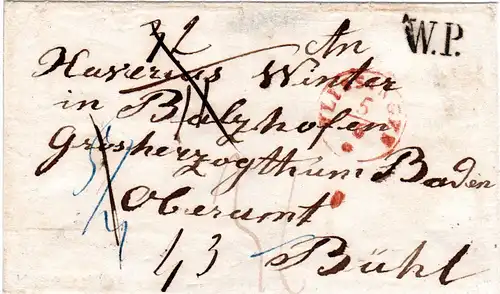 32
An
W.P.
Xaverius Winter
in Balzhofen
Grosherzogthum Baden
Oberamt
Bühl